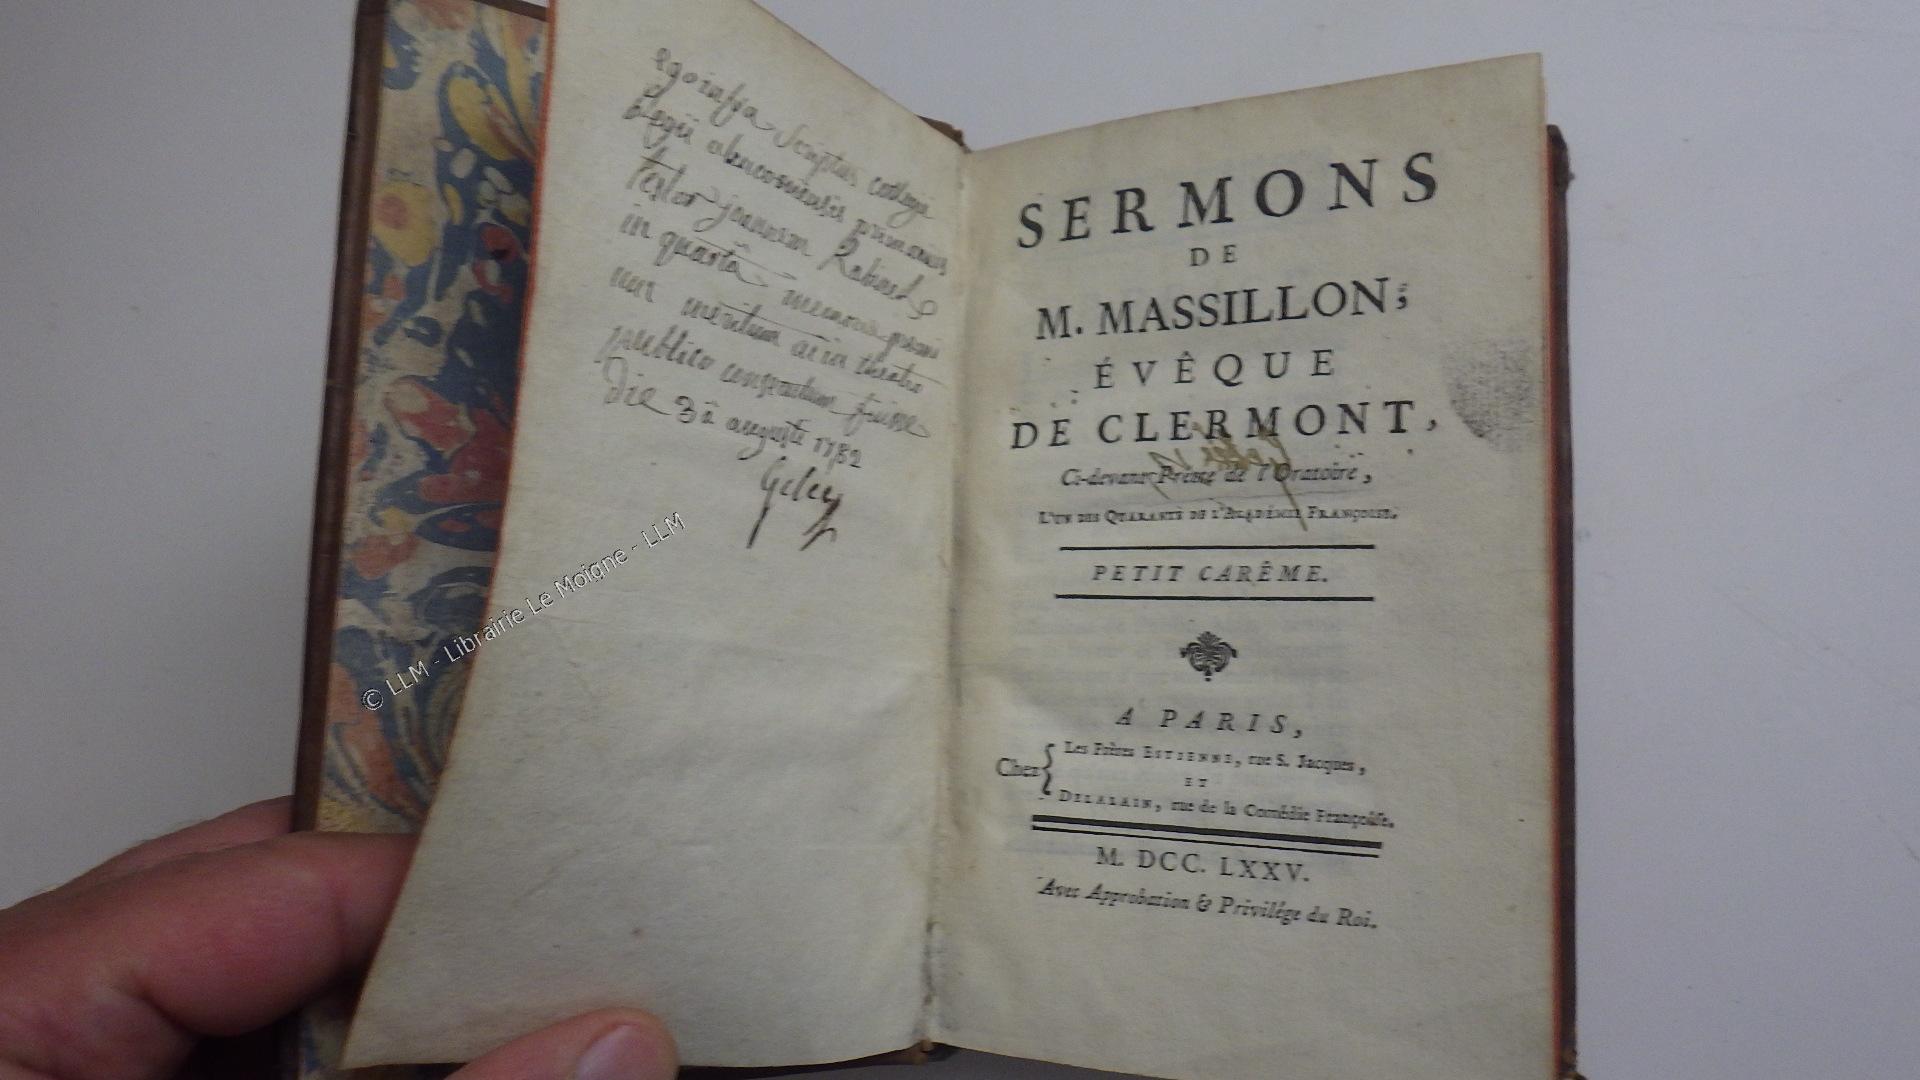 ego infra scriptus collegii
Regii primarius
testor joannem
in quartâ memoriæ præmi
um meritum ac in theatro
publico consecutum fuisse
Die 3â augusti 1782
Geley
© LLM - Librairie Le Moigne - LLM
SERMONS
DE
M. MASSILLON;
ÉVÊQUE
DE CLERMONT,
Ci-devant Prêtre de l'Oratoire,
L'UN DES QUARANTE DE L'ACADÉMIE FRANÇOISE.
PETIT CARÊME.
A PARIS,
Chez { Les Frères ESTIENNE, rue S. Jacques,
ET
DELALAIN, rue de la Comédie Françoise.
M. DCC. LXXV.
Avec Approbation & Privilége du Roi.